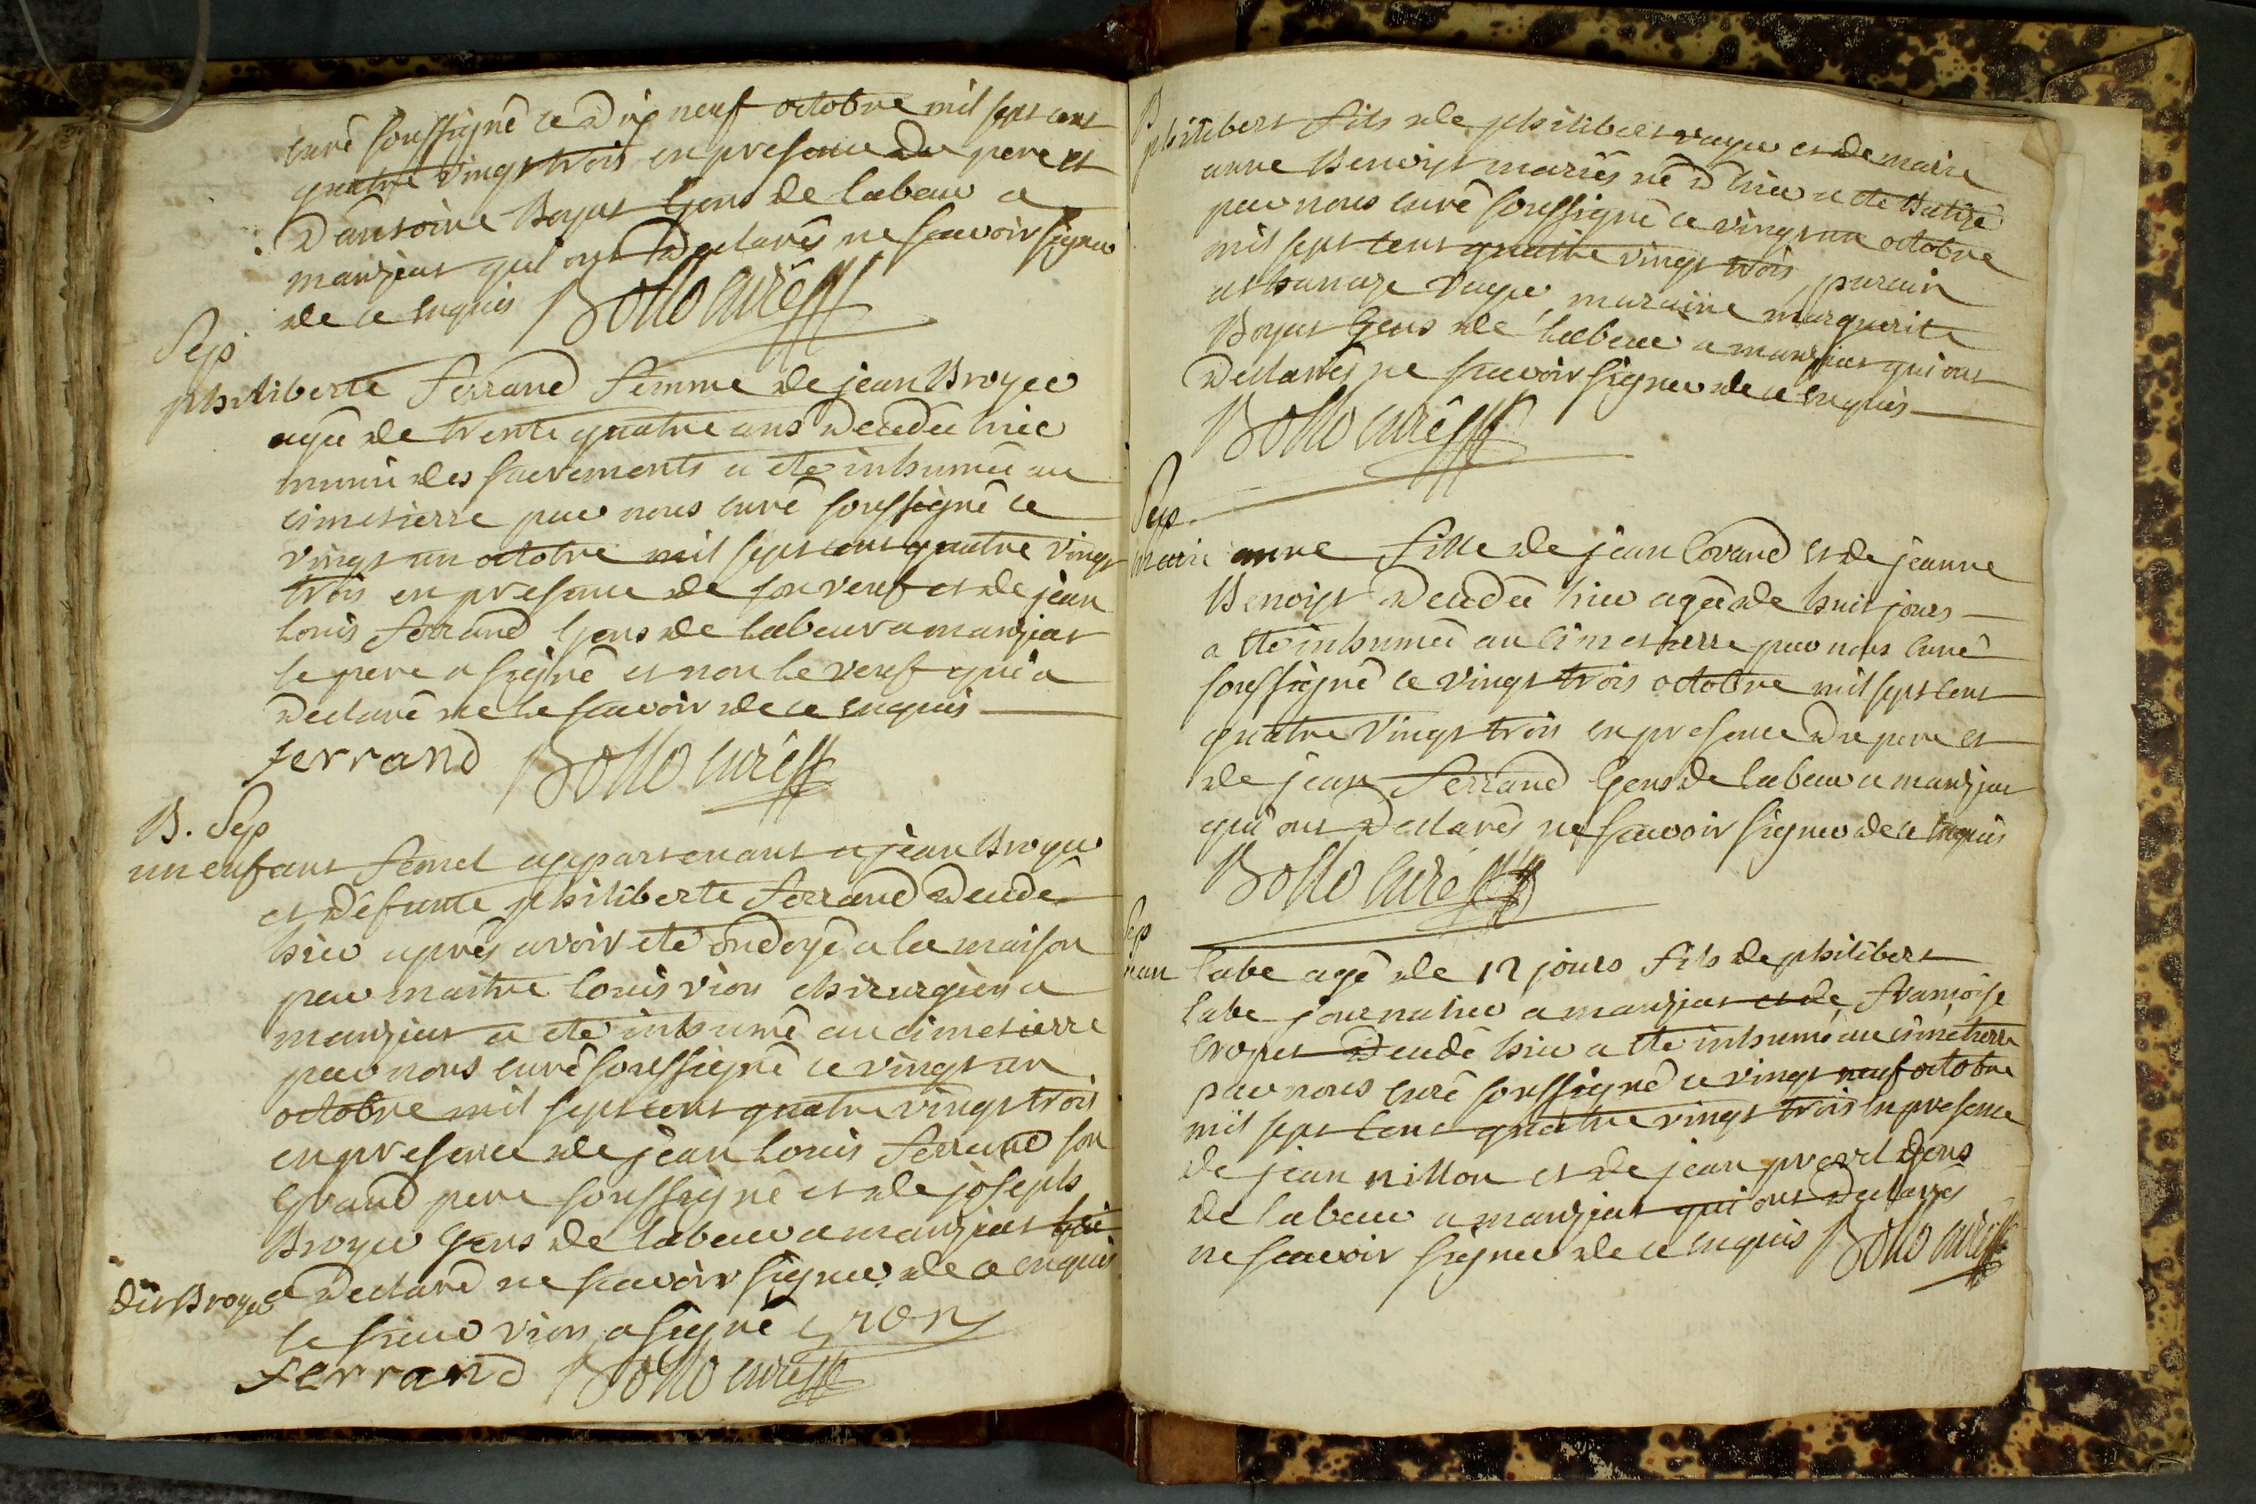 curé soussigné ce dix neuf octobre mil sept cent
quatre vingt trois en presence du pere et
d'antoine Boyat Gens de labeur a
manziat qui ont declarés ne scavoir signer
de ce enquis Bollo curé
Sep
philiberte ferrand femme de jean Broyer
agée de trente quatre ans decedée hier
munie des sacrements a eté inhumée au
cimetierre par nous curé soussigné ce
vingt un octobre mil sept cent quatre vingt
trois en presence de son veuf et de jean
louis ferrand Gens de labeur a manziat
le pere a signé et non le veuf qui a
declaré ne le scavoir de ce enquis
ferrand Bollo curé
B. Sep
un enfant femel appartenant a jean Broyer
et defunte philiberte ferrand decedé
hier après avoir eté ondoyé a la maison
par maitre louis vion chirurgien a
manziat a eté inhumé au cimetierre
par nous curé soussigné ce vingt un
octobre mil sept cent quatre vingt trois
en presence de jean louis ferrand son
Grand pere soussigné et de joseph
Broyer Gens de labeur a manziat
dit Broyer a declaré ne scavoir signer de ce enquis
le sieur vion a signé vion
ferrand Bollo curé
B
philibert fils de philibert vayer et de marie
anne Benoist mariés né d'hier a eté Batizé
par nous curé soussigné ce vingt un octobre
mil sept cent quatre vingt trois, parain
athanaze vayer, maraine marguerite
Boyat Gens de labeur a manziat qui ont
declarés ne scavoir signer de ce enquis
Bollo curé
Sep
marie anne fille de jean Corand et de jeanne
Benoist decedée hier agée de huit jours
a eté inhumée au cimetierre par nous curé
soussigné ce vingt trois octobre mil sept cent
quatre vingt trois en presence du pere et
de jean ferrand Gens de labeur a manziat
qui ont declarés ne scavoir signer de ce enquis
Bollo curé
Sep
labe agé de 12 jours fils de philibert
labe journalier a manziat et de francoise
Broyer decedé hier a eté inhumé au cimetierre
par nous curé soussigné ce vingt neuf octobre
mil sept cent quatre vingt trois en presence
de jean nillon et de jean previl Gens
de labeur a manziat qui ont declarés
ne scavoir signer de ce enquis Bollo curé